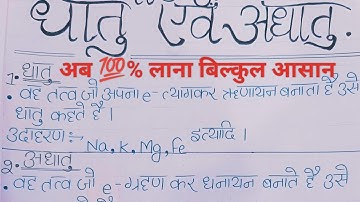 धातु एवं अधातु.
अब 💯% लाना बिल्कुल आसान
1. धातु
• वह तत्व जो अपना e- त्यागकर ऋणायन बनाता है उसे
धातु कहते है ।
उदाहरण:- Na, K, Mg, Fe इत्यादि ।
2. अधातु
• वह तत्व जो e- ग्रहण कर धनायन बनाते है उसे